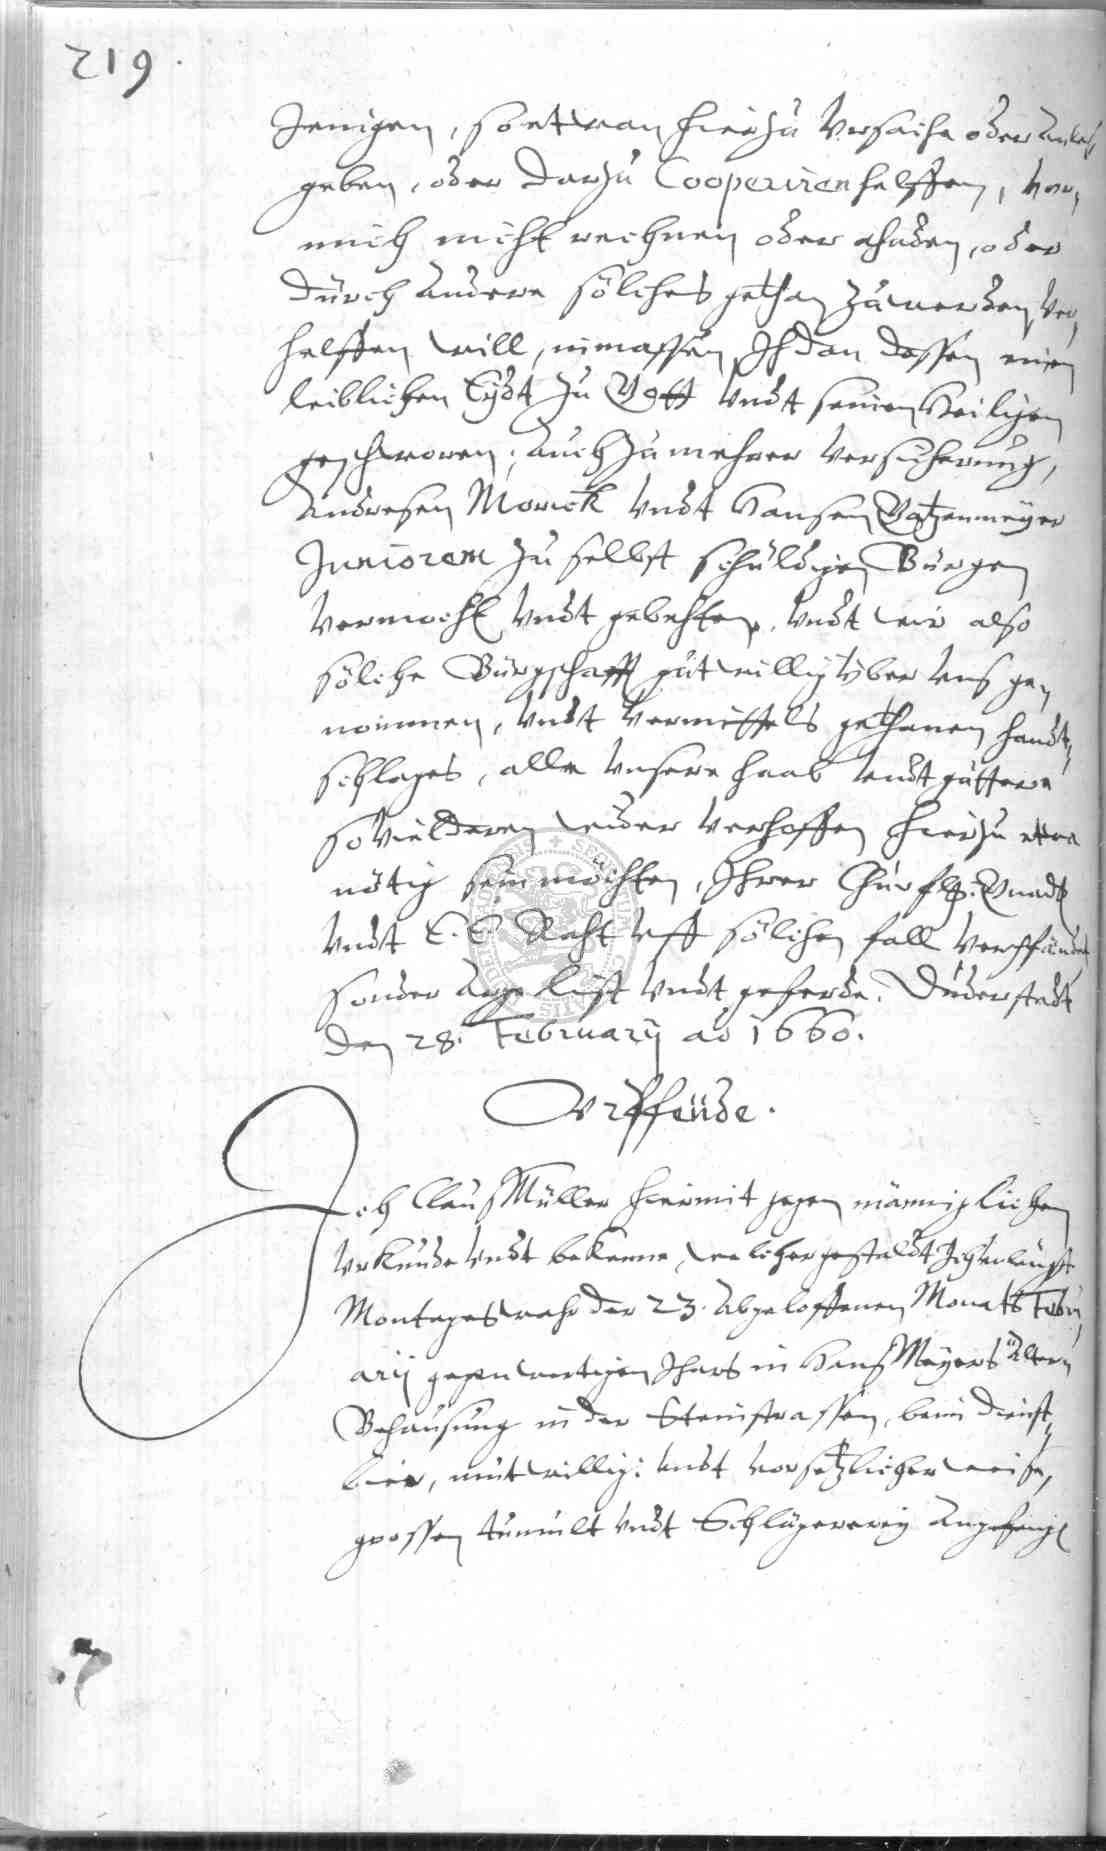 219.
Jenigen, so etwan hierzu Ursache oder Anlaß
geben, oder darzu Cooperiren helffen, vor
mich nicht rechnen oder ahnden, oder
durch Andere solches gethan zu werden, ver,
helffen will, inmassen Ich dan dessen einen
leiblichen Eydt zu Gott undt seinen Heiligen
geschworen; auch zu mehrer Versicherung,
Andresen Morick undt Hansen Vatzenmeyer
Juniorem zu selbst schuldigen Bürgen
vermocht undt gebehten, undt wir also
solche Bürgschafft gutwillig über uns ge,
nommen, undt vermittels gethanen handt,
schlages, alle unsere haab undt güttere
so viel deren wider verhoffen hierzu etwa
nötig sein möchten, Ihrer Churfl. Gnadt
undt E. E. Raht uff solchen fall verpfändet
sonder Arge list undt geferde. Duderstadt
den 28. February ao 1660.
Urffende.
Ich Clauß Müller hiermit gegen männiglichen
Urkunde undt bekenne, welchergestaldt Ich unlängst
Montages wahr der 23. Abgeloffenen Monats Febru,
arij gegenwertigen Jhars in Hanß Meyers Ältern
Behausung in der Steinstrassen, beim dienst,
bier, mutwillig: undt vorsetzlicher weise,
grossen tumult undt Schlägererey Angefangen